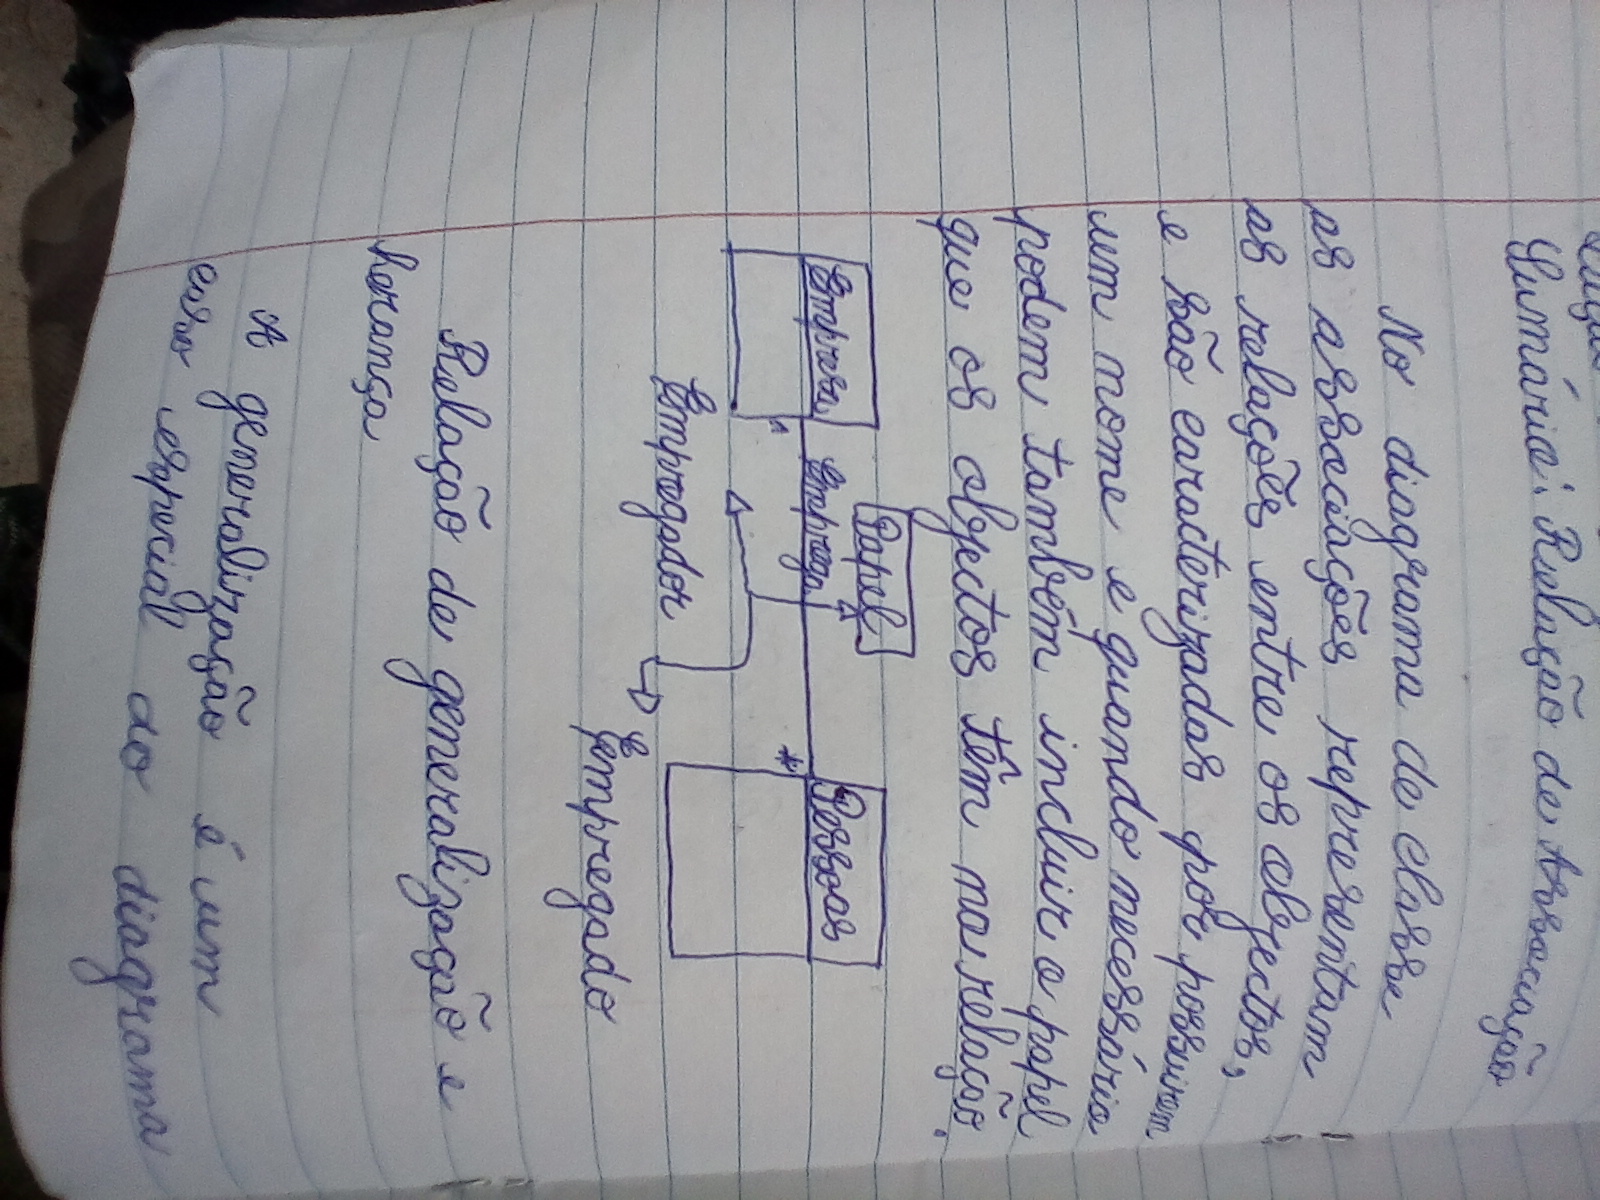 Lição
Sumário: Relação de Associação
No diagrama de classe
as associações representam
as relações entre os objectos,
e são caracterizadas por possuirem
um nome e quando necessário
podem também incluir o papel
que os objectos têm na relação.
Papel
Empresa
Emprega
Pessoas
*
Empregador
Empregado
Relação de generalização e
herança
A generalização é um
caso especial do diagrama